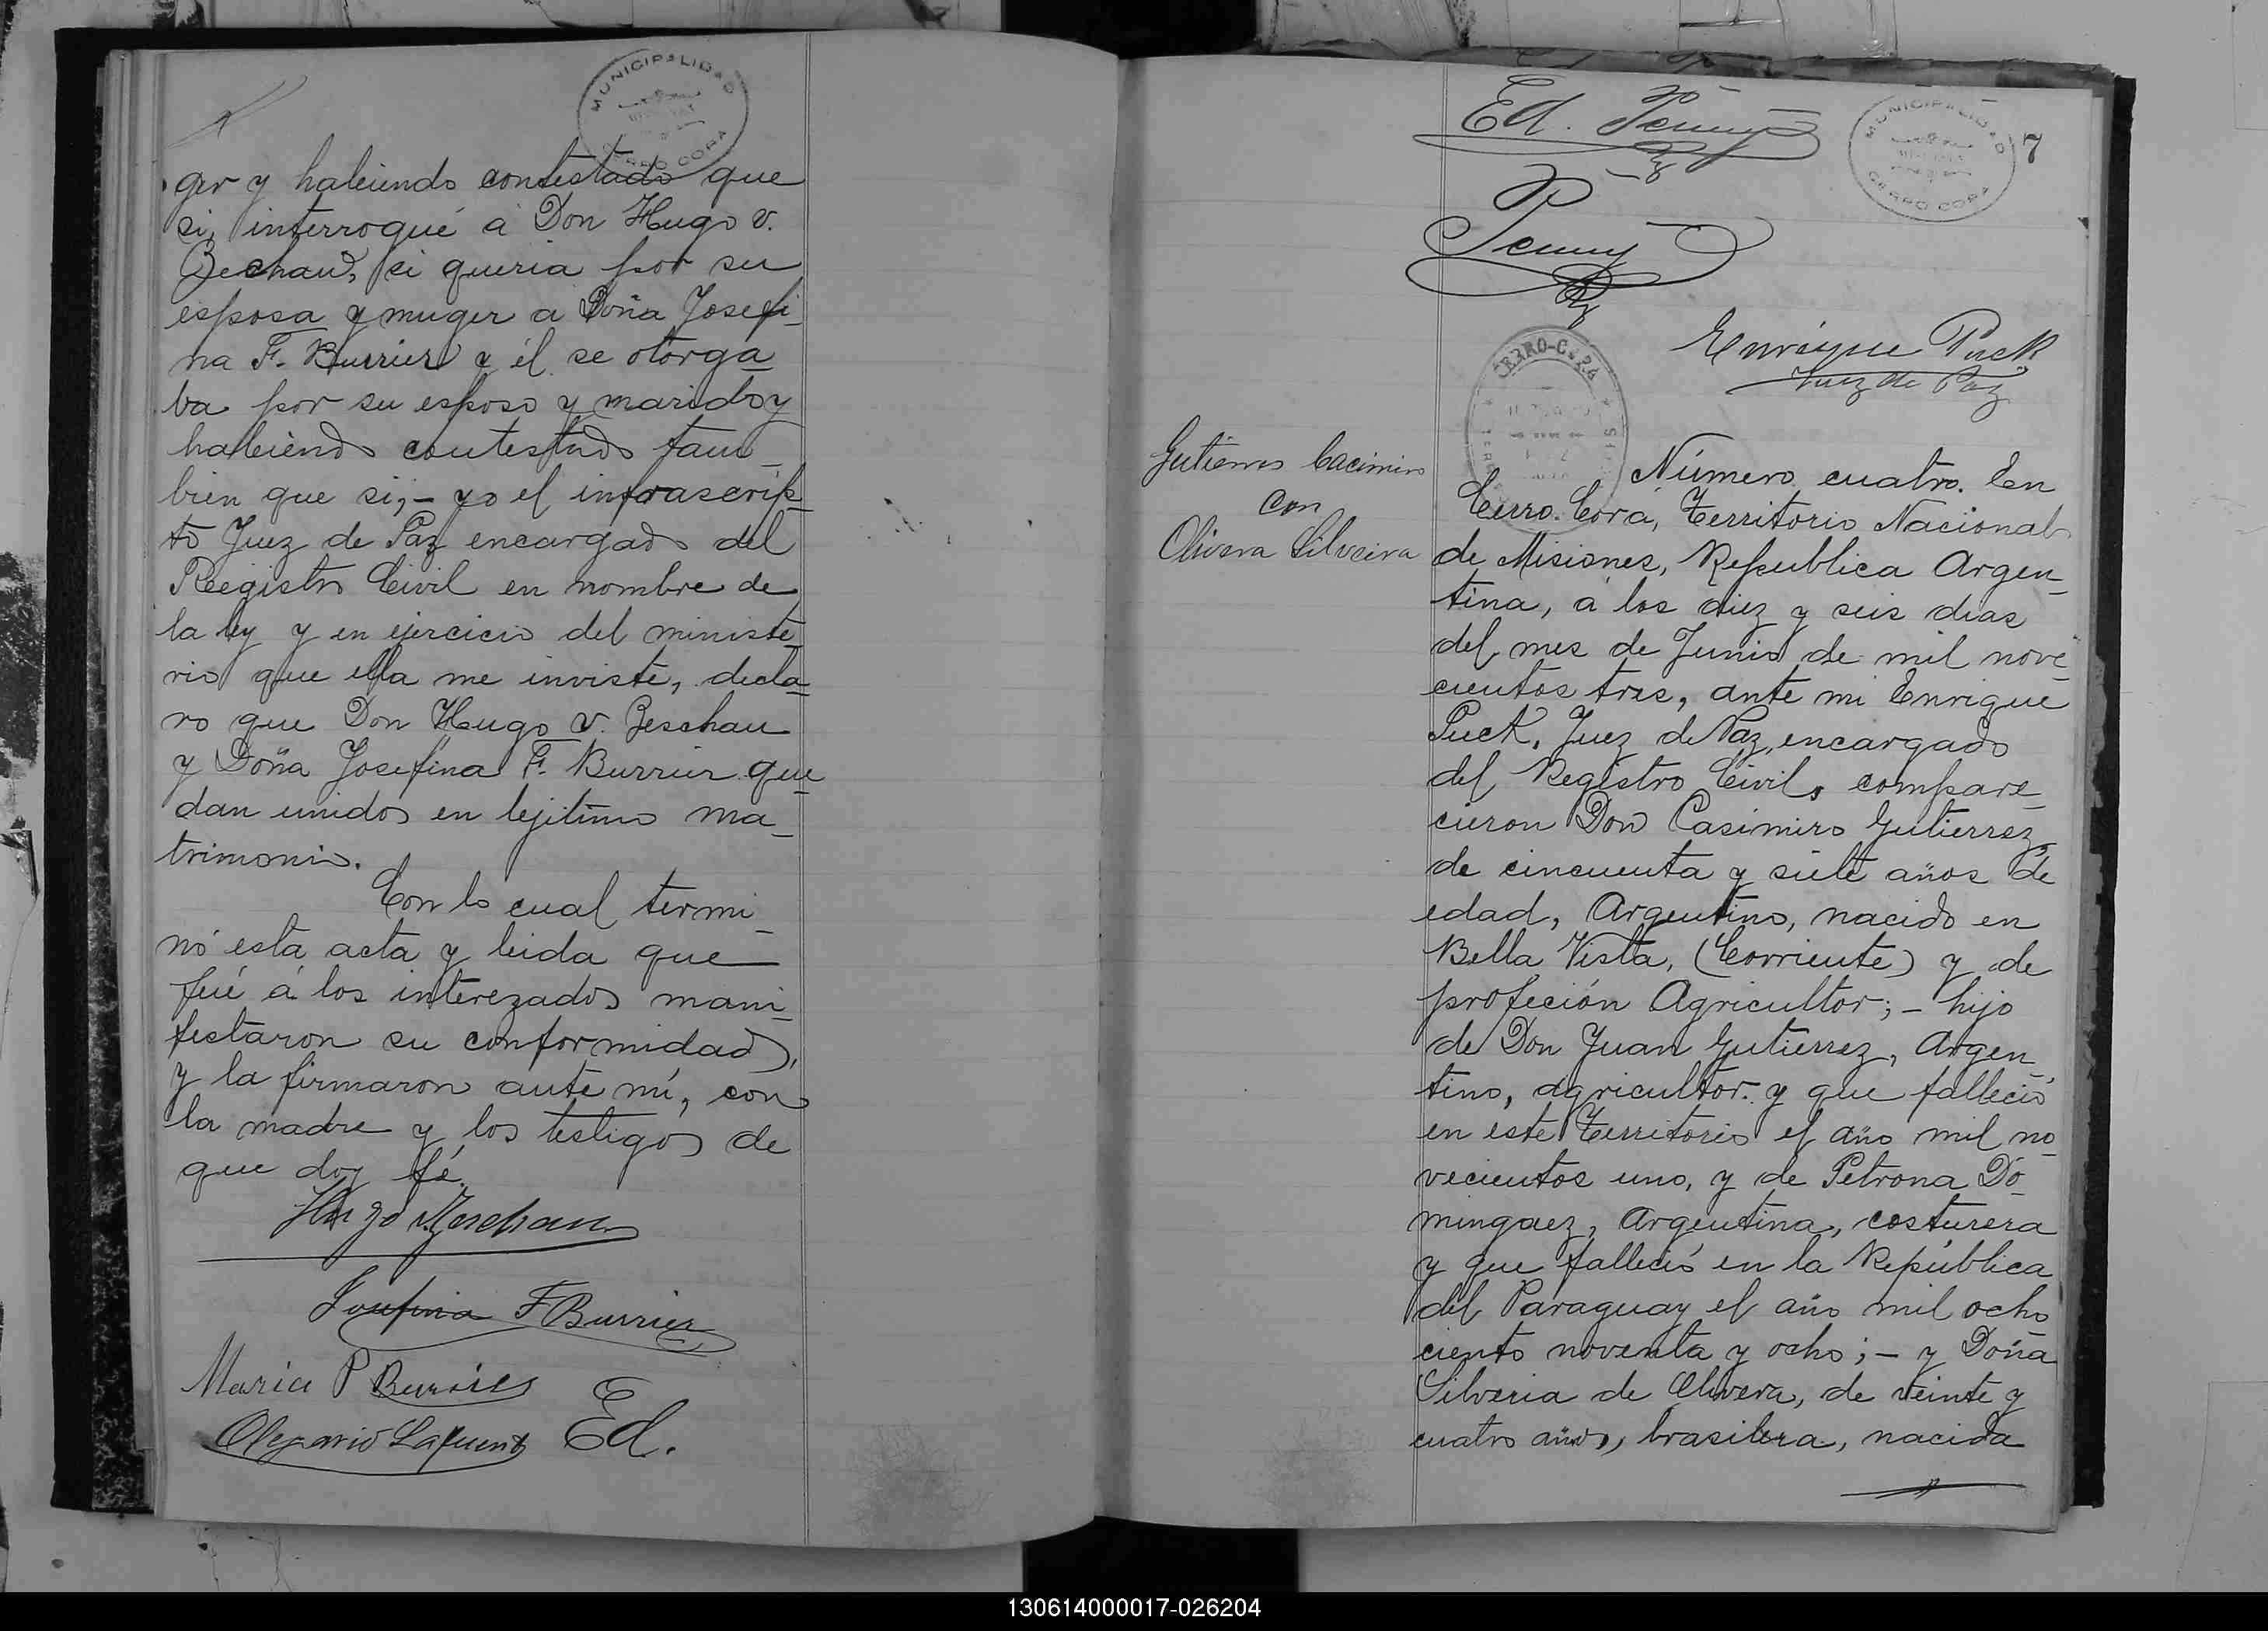 MUNICIPALIDAD
CERRO CORA
ger y habiendo contestado que
si, interroqué á Don Hugo v.
Beschau, si queria por su
esposa y muger a Doña Josefi_
na F. Burrier y él se otorga_
ba por su esposo y marido y
habiendo contestado tam_
bien que si; – yo el infrascrip_
to Juez de Paz encargado del
Registro Civil en nombre de
la ley y en ejercicio del ministe_
rio que ella me inviste, decla_
ro que Don Hugo v. Zeschau
y Doña Josefina F. Burrier que_
dan unidos en lejitimo ma_
trimonio.
Con lo cual termi_
nó esta acta y leida que
fué á los interezados mani_
festaron su conformidad,
y la firmaron ante mí, con
la madre y los testigos de
que doy fé.
Hugo Zeschau
Josefina F Burrier
Maria P Burrier
Olegario Lafuente Ed.
Ed. Penny
MUNICIPALIDAD
CERRO CORA
7
Penny
Enrique Puck
Juez de Paz
CERRO-CORA
Gutierres Cacimiro
con
Olivera Silveira
Número cuatro. En
Cerro. Corá, Territorio Nacional
de Misiones, Republica Argen_
tina, á los diez y seis dias
del mes de Junio de mil nove_
cientos tres, ante mi Enrique
Puck, Juez de Paz, encargado
del Registro Civil, compare_
cieron Don Casimiro Gutierrez,
de cincuenta y siete años de
edad, Argentino, nacido en
Bella Vista, (Corriente) y de
profeción Agricultor; – hijo
de Don Juan Gutierrez, Argen_
tino, agricultor. y que falleció
en este Territorio el año mil no_
vecientos uno, y de Petrona Do_
minguez, Argentina, costurera
y que falleció en la República
del Paraguay el año mil ocho
ciento noventa y ocho; – y Doña
Silveria de Olivera, de veinte y
cuatro años, brasilera, nacida
130614000017-026204